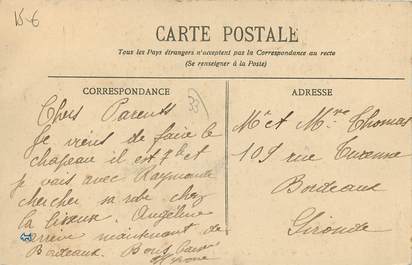 15-6
CARTE POSTALE
Tous les Pays étrangers n'acceptent pas la Correspondance au recto
(Se renseigner à la Poste)
CORRESPONDANCE
ADRESSE
33
Chers Parents
Je viens de faire le
chapeau il est et
je vais avec Raymonde
chercher sa robe chez
la Angéline
arrive maintenant de
Bordeaux. Bons
Mr et Mme Thomas
109 rue Turenne
Bordeaux
Gironde